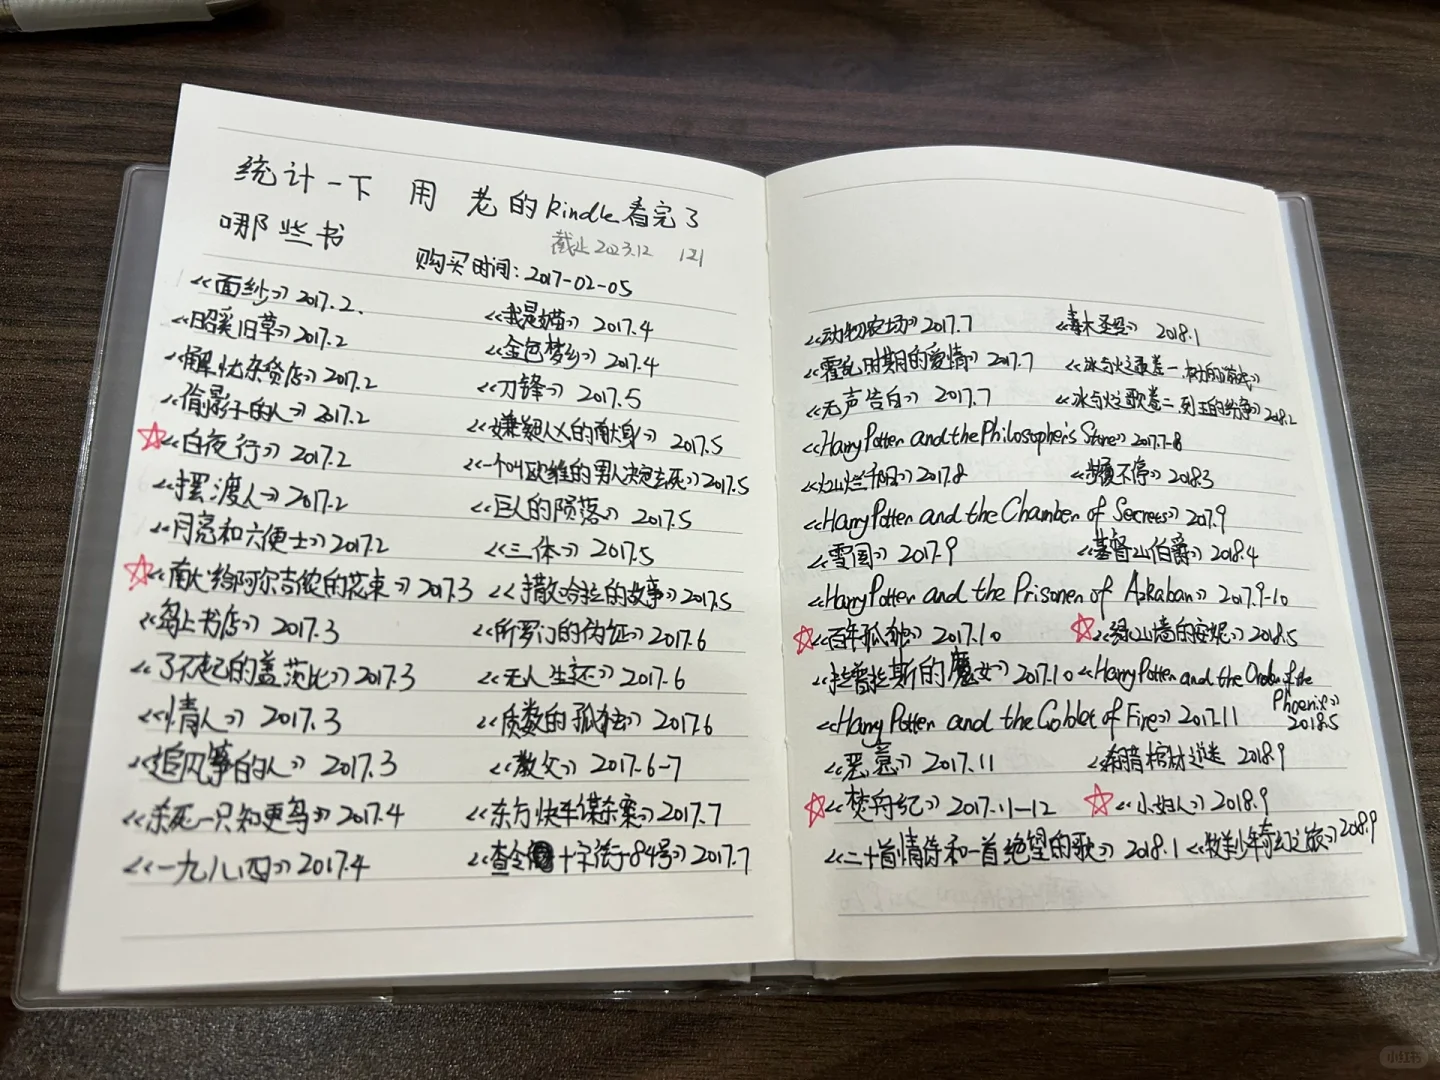 统计一下 用 老的Kindle看完了
哪些书
截止2023.12 121
购买时间：2017-02-05
《面纱》2017.2.
《昭奚旧草》2017.2
《解忧杂货店》2017.2
《偷影子的人》2017.2
《白夜行》2017.2
《摆渡人》2017.2
《月亮和六便士》2017.2
《献给阿尔吉侬的花束》2017.3
《岛上书店》2017.3
《了不起的盖茨比》2017.3
《情人》2017.3
《追风筝的人》2017.3
《杀死一只知更鸟》2017.4
《一九八四》2017.4
《我是猫》2017.4
《金色梦乡》2017.4
《刀锋》2017.5
《嫌疑人X的献身》2017.5
《一个叫欧维的男人决定去死》2017.5
《巨人的陨落》2017.5
《三体》2017.5
《撒哈拉的故事》2017.5
《所罗门的伪证》2017.6
《无人生还》2017.6
《质数的孤独》2017.6
《教父》2017-6-7
《东方快车谋杀案》2017.7
《查令十字街84号》2017.7
《动物农场》2017.7
《霍乱时期的爱情》2017.7
《无声告白》2017.7
《Harry Potter and the Philosopher's Stone》2017.7-8
《灿烂千阳》2017.8
《Harry Potter and the Chamber of Secrets》2017.9
《雪国》2017.9
《Harry Potter and the Prisoner of Azkaban》2017.9-10
《百年孤独》2017.10
《拉普拉斯的魔女》2017.10
《Harry Potter and the Goblet of Fire》2017.11
《恶意》2017.11
《梵舟纪》2017.11-12
《二十首情诗和一首绝望的歌》2018.1
《青木圣思》2018.1
《冰与火之歌卷一.权力的游戏》
《冰与火之歌卷二 列王的纷争》2018.2
《步履不停》2018.3
《基督山伯爵》2018.4
《绿山墙的安妮》2018.5
《Harry Potter and the Order of the
Phoenix》
2018.5
《希腊棺材之谜 2018.9
《小妇人》2018.9
《牧羊少年奇幻之旅》2018.9
小红书